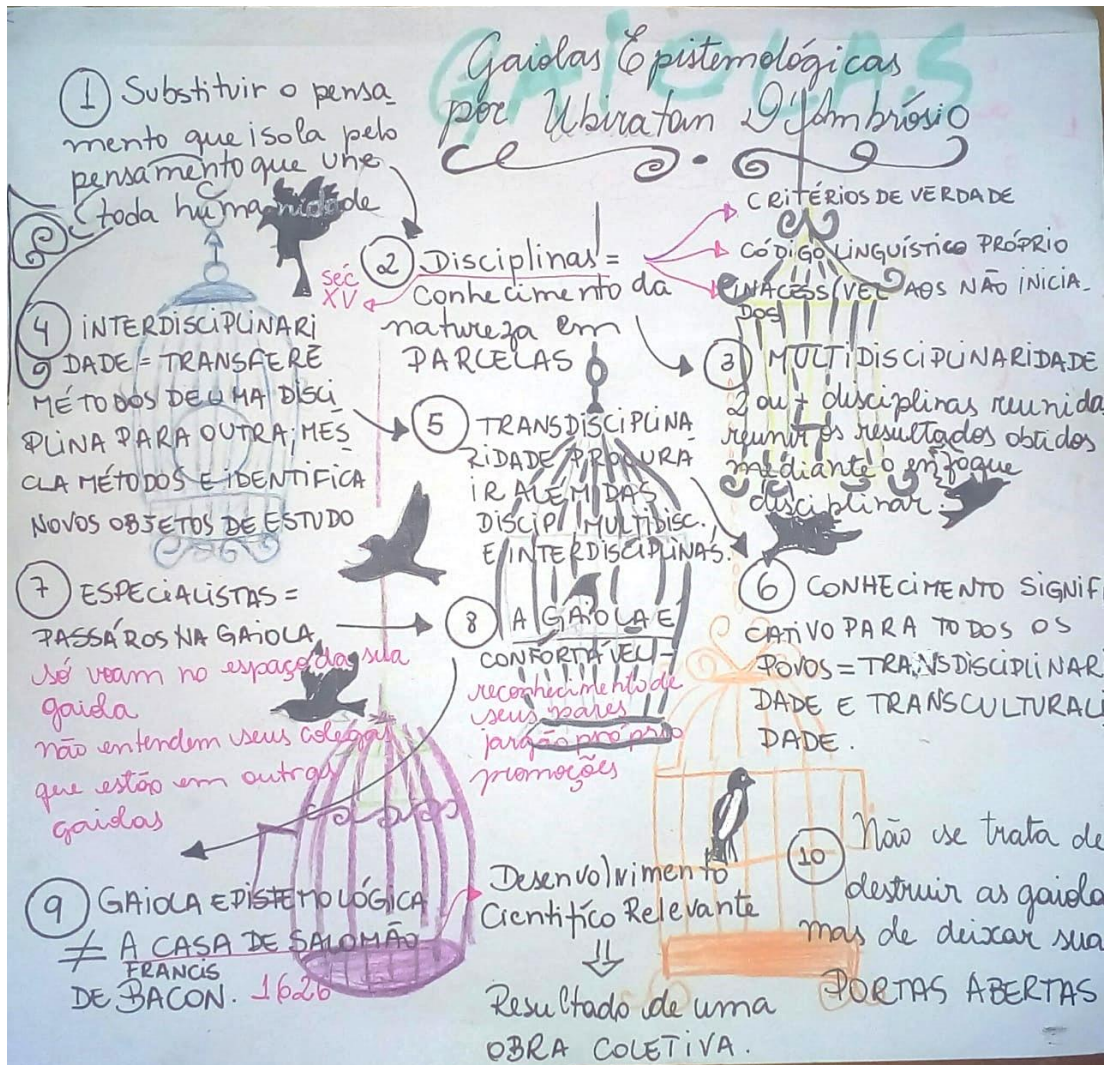 GAIOLAS
Gaiolas Epistemológicas
por Ubiratan D'Ambrósio
1 Substituir o pensa_
mento que isola pelo
pensamento que une
toda humanidade
2 Disciplinas =
Conhecimento da
natureza em
PARCELAS
séc
XV
CRITÉRIOS DE VERDADE
CÓDIGO LINGUÍSTICO PRÓPRIO
INACESSÍVEL AOS NÃO INICIA_
DOS
3 MULTIDISCIPLINARIDADE
2 ou + disciplinas reunidas
reunir os resultados obtidos
mediante o enfoque
disciplinar.
4 INTERDISCIPLINARI
DADE = TRANSFERE
MÉTODOS DE UMA DISCI_
PLINA PARA OUTRA; MES_
CLA MÉTODOS E IDENTIFICA
NOVOS OBJETOS DE ESTUDO
5 TRANSDISCIPLINA
RIDADE PROCURA
IR ALÉM DAS
DISCIP/ MULTIDISC.
E INTERDISCIPLINAS.
6 CONHECIMENTO SIGNIFI
CATIVO PARA TODOS OS
POVOS = TRANSDISCIPLINARI
DADE E TRANSCULTURALI
DADE.
7 ESPECIALISTAS =
PASSÁROS NA GAIOLA
só voam no espaço da sua
gaiola
não entendem seus colegas
que estão em outras
gaiolas
8 A GAIOLA É
CONFORTÁVEL! -
reconhecimento de
seus pares
jargão próprio
promoções
9 GAIOLA EPISTEMOLÓGICA
≠ A CASA DE SALOMÃO
FRANCIS
DE BACON. 1626
Desenvolvimento
Científico Relevante
⇓
Resultado de uma
OBRA COLETIVA.
10 Não se trata de
destruir as gaiola
mas de deixar sua
PORTAS ABERTAS